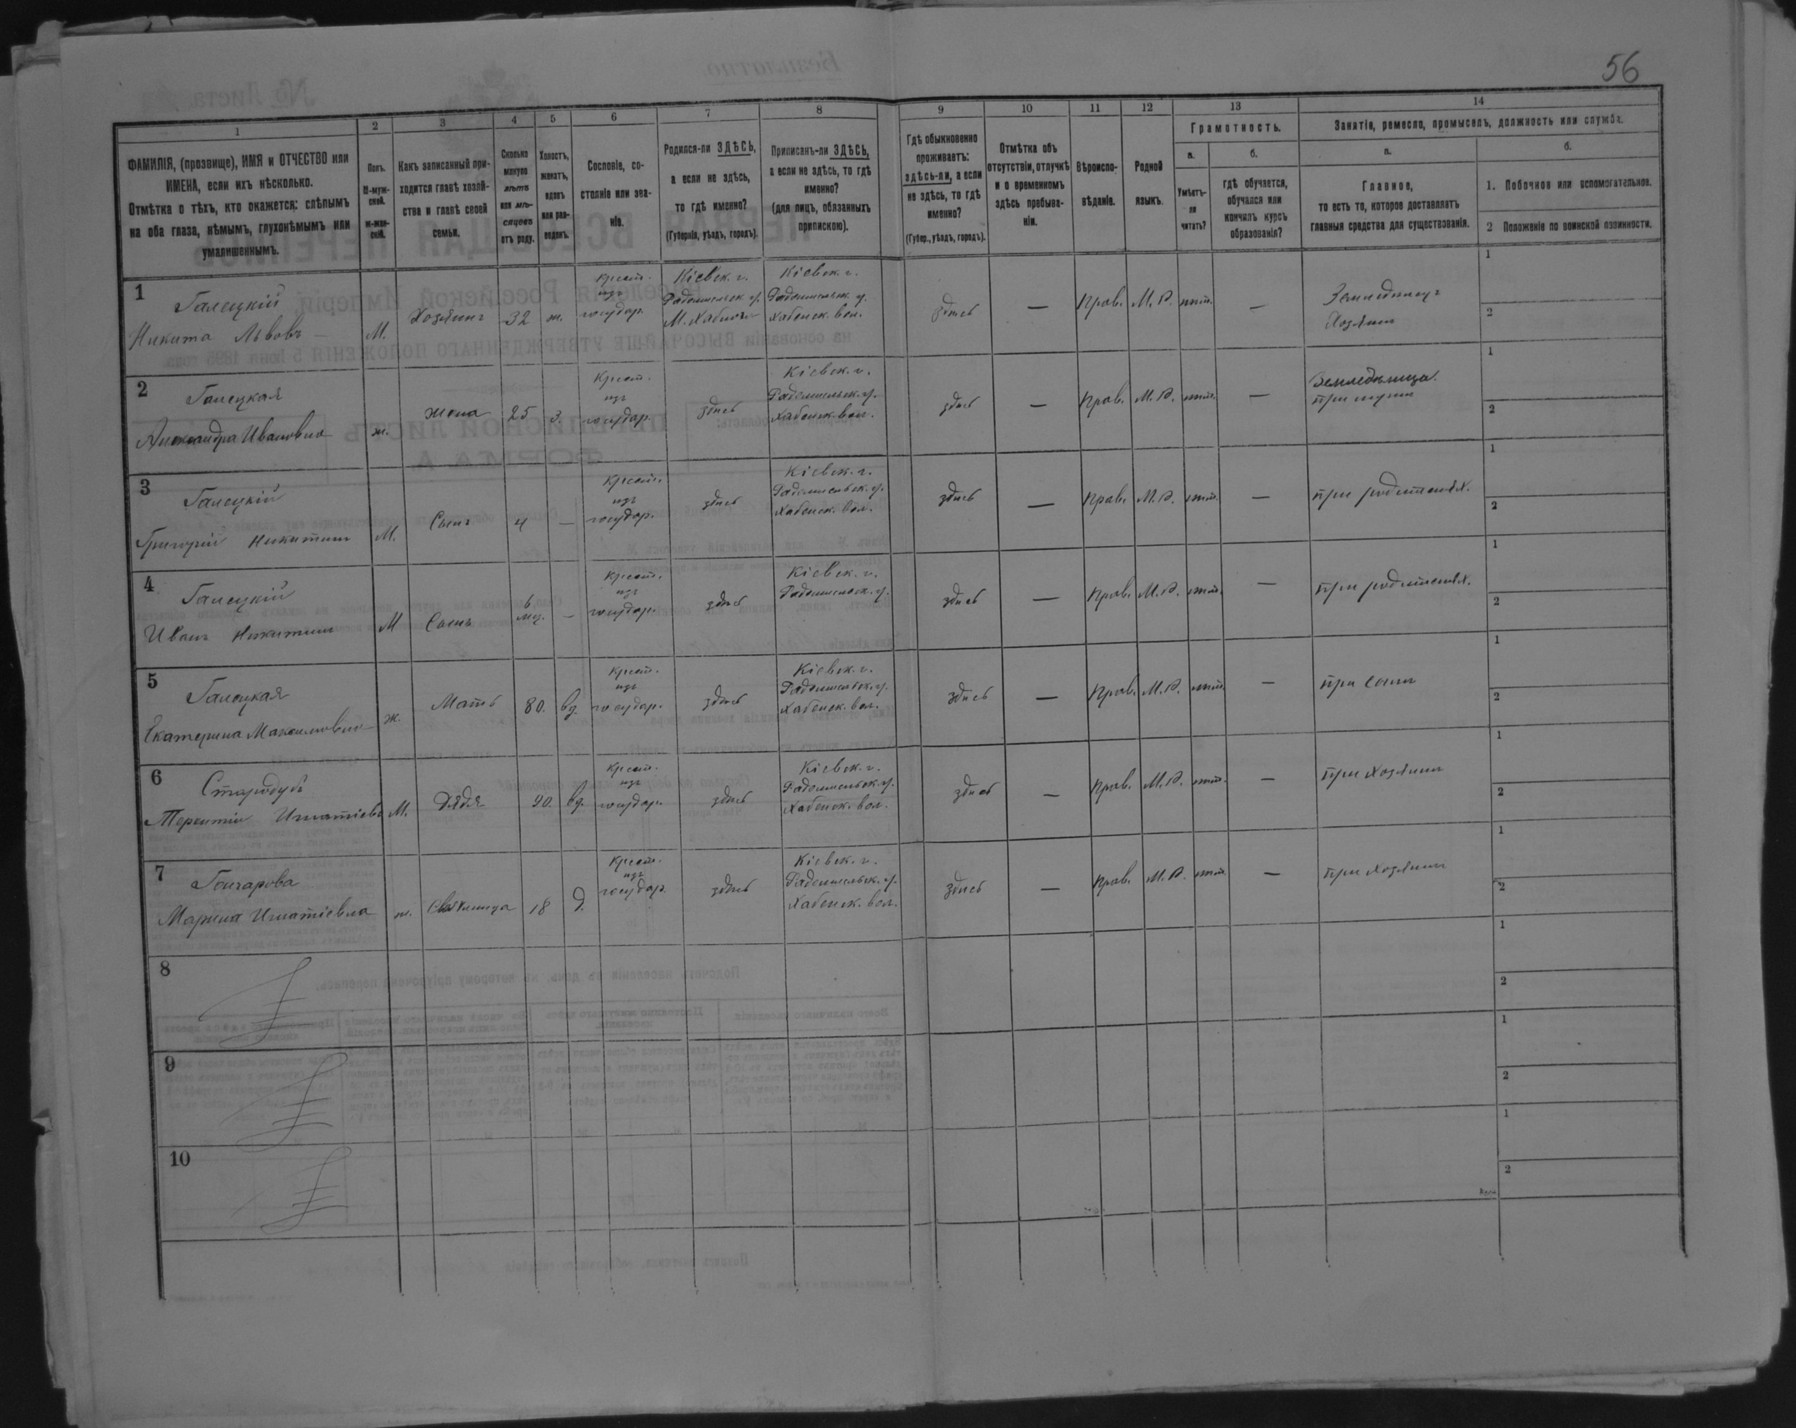 56
1
2
3
4
5
6
7
8
9
10
11
12
13
14
ФАМИЛІЯ, (прозвище), ИМЯ и ОТЧЕСТВО или
ИМЕНА, если ихъ нѣсколько.
Отмѣтка о тѣхъ, кто окажется: слѣпымъ
на оба глаза, нѣмымъ, глухонѣмымъ или
умалишеннымъ.
Полъ.
М-муж-
ской.
Ж-жен-
скій.
Какъ записанный при-
ходится главѣ хозяй-
ства и главѣ своей
семьи.
Сколько
минуло
лѣтъ
или мѣ-
сяцевъ
отъ роду.
Холостъ,
женатъ,
вдовъ
или раз-
веденъ.
Сословіе, со-
стояніе или зва-
ніе.
Родился-ли ЗДѢСЬ,
а если не здѣсь,
то гдѣ именно?
(Губернія, уѣздъ, городъ).
Приписанъ-ли ЗДѢСЬ,
а если не здѣсь, то гдѣ
именно?
(для лицъ, обязанныхъ
припискою).
Гдѣ обыкновенно
проживаетъ:
здѣсь-ли, а если
не здѣсь, то гдѣ
именно?
(Губер., уѣздъ, городъ).
Отмѣтка объ
отсутствіи, отлучкѣ
и о временномъ
здѣсь пребыва-
ніи.
Вѣроиспо-
вѣданіе.
Родной
языкъ.
Грамотность.
а.
Умѣетъ-
ли
читать?
б.
гдѣ обучается,
обучался или
кончилъ курсъ
образованія?
Занятіе, ремесло, промыселъ, должность или служба.
а.
Главное,
то есть то, которое доставляетъ
главныя средства для существованія.
б.
1. Побочное или вспомогательное.
2 Положеніе по воинской повинности.
1
Галецкій
Никита Львовъ
М.
Хозяинъ
32
ж.
Крест.
изъ
государ.
Кіевск. г.
Радомысльск. у.
М. Хабное
Кіевск. г.
Радомысльск. у.
Хабенск. вол.
здѣсь
—
Прав.
М. Р.
нѣт.
—
Земледѣлецъ
Хозяинъ
1
2
2
Галецкая
Александра Ивановна
ж.
жена
25
з.
Крест.
изъ
государ.
здѣсь
Кіевск. г.
Радомысльск. у.
Хабенск. вол.
здѣсь
—
Прав.
М. Р.
нѣт.
—
Земледѣлица
при мужѣ
1
2
3
Галецкій
Григорій Никитинъ
М.
Сынъ
4
—
Крест.
изъ
государ.
здѣсь
Кіевск. г.
Радомысльск. у.
Хабенск. вол.
здѣсь
—
Прав.
М. Р.
нѣт.
—
при родителях.
1
2
4
Галецкій
Иванъ Никитинъ
М
Сынъ
6
мц.
—
Крест.
изъ
государ.
здѣсь
Кіевск. г.
Радомысльск. у.
здѣсь
—
Прав.
М. Р.
нѣт.
—
при родителях.
1
2
5
Галецкая
Екатерина Максимовна
ж.
Мать
80.
вд.
Крест.
изъ
государ.
здѣсь
Кіевск. г.
Радомысльск. у.
Хабенск. вол.
здѣсь
—
Прав.
М. Р.
нѣт.
—
при сынѣ
1
2
6
Стародубъ
Терентій Игнатіевъ
М.
Дядя
90.
вд.
Крест.
изъ
государ.
здѣсь
Кіевск. г.
Радомысльск. у.
Хабенск. вол.
здѣсь
—
Прав.
М. Р.
нѣт.
—
при хозяинѣ
1
2
7
Гончарова
Марина Игнатіевна
ж.
18
д.
Крест.
изъ
государ.
здѣсь
Кіевск. г.
Радомысльск. у.
Хабенск. вол.
здѣсь
—
Прав.
М. Р.
нѣт.
—
при хозяинѣ
1
2
8
1
2
9
1
2
10
1
2